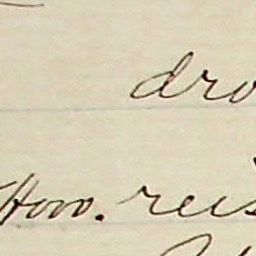 dro
How. reis